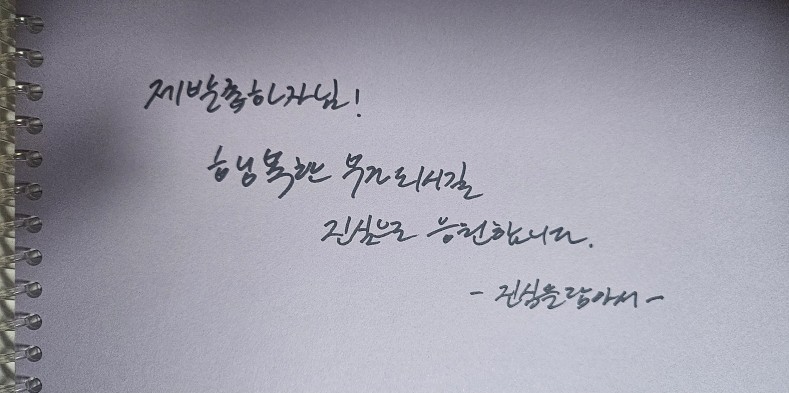 제발축하자님!
행복한 부자되시길
진심으로 응원합니다.
- 진심을담아서 -